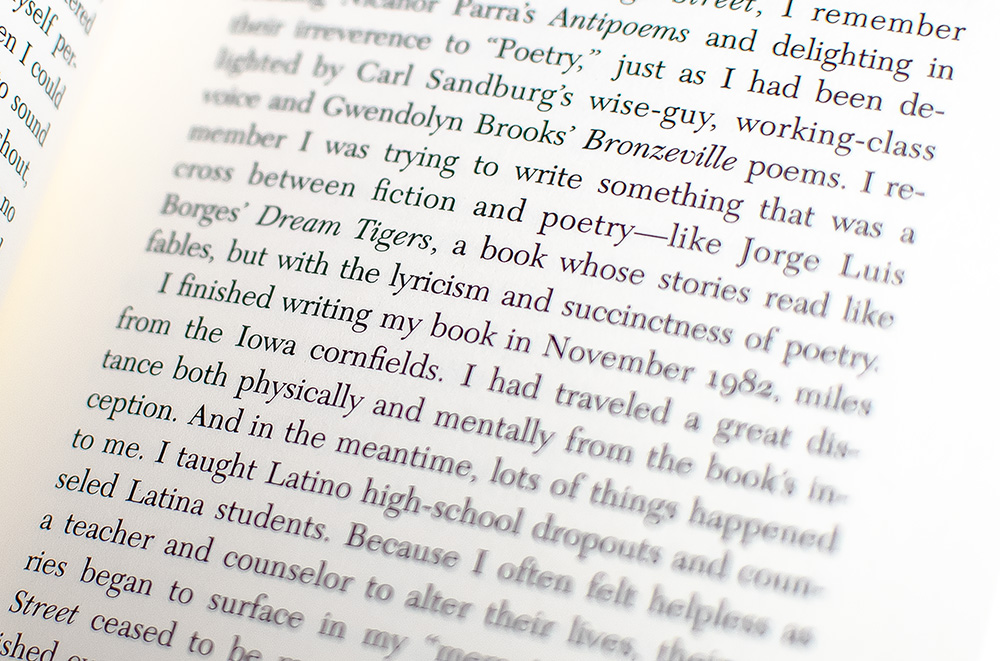 ered
yself per-
en I could
to sound
hout,
no
Street, I remember
Nicanor Parra's Antipoems and delighting in
their irreverence to “Poetry,” just as I had been de-
lighted by Carl Sandburg's wise-guy, working-class
voice and Gwendolyn Brooks' Bronzeville poems. I re-
member I was trying to write something that was a
cross between fiction and poetry—like Jorge Luis
Borges' Dream Tigers, a book whose stories read like
fables, but with the lyricism and succinctness of poetry.
I finished writing my book in November 1982, miles
from the Iowa cornfields. I had traveled a great dis-
tance both physically and mentally from the book's in-
ception. And in the meantime, lots of things happened
to me. I taught Latino high-school dropouts and coun-
seled Latina students. Because I often felt helpless as
a teacher and counselor to alter their lives, their
ries began to surface in my
Street ceased to be
ished